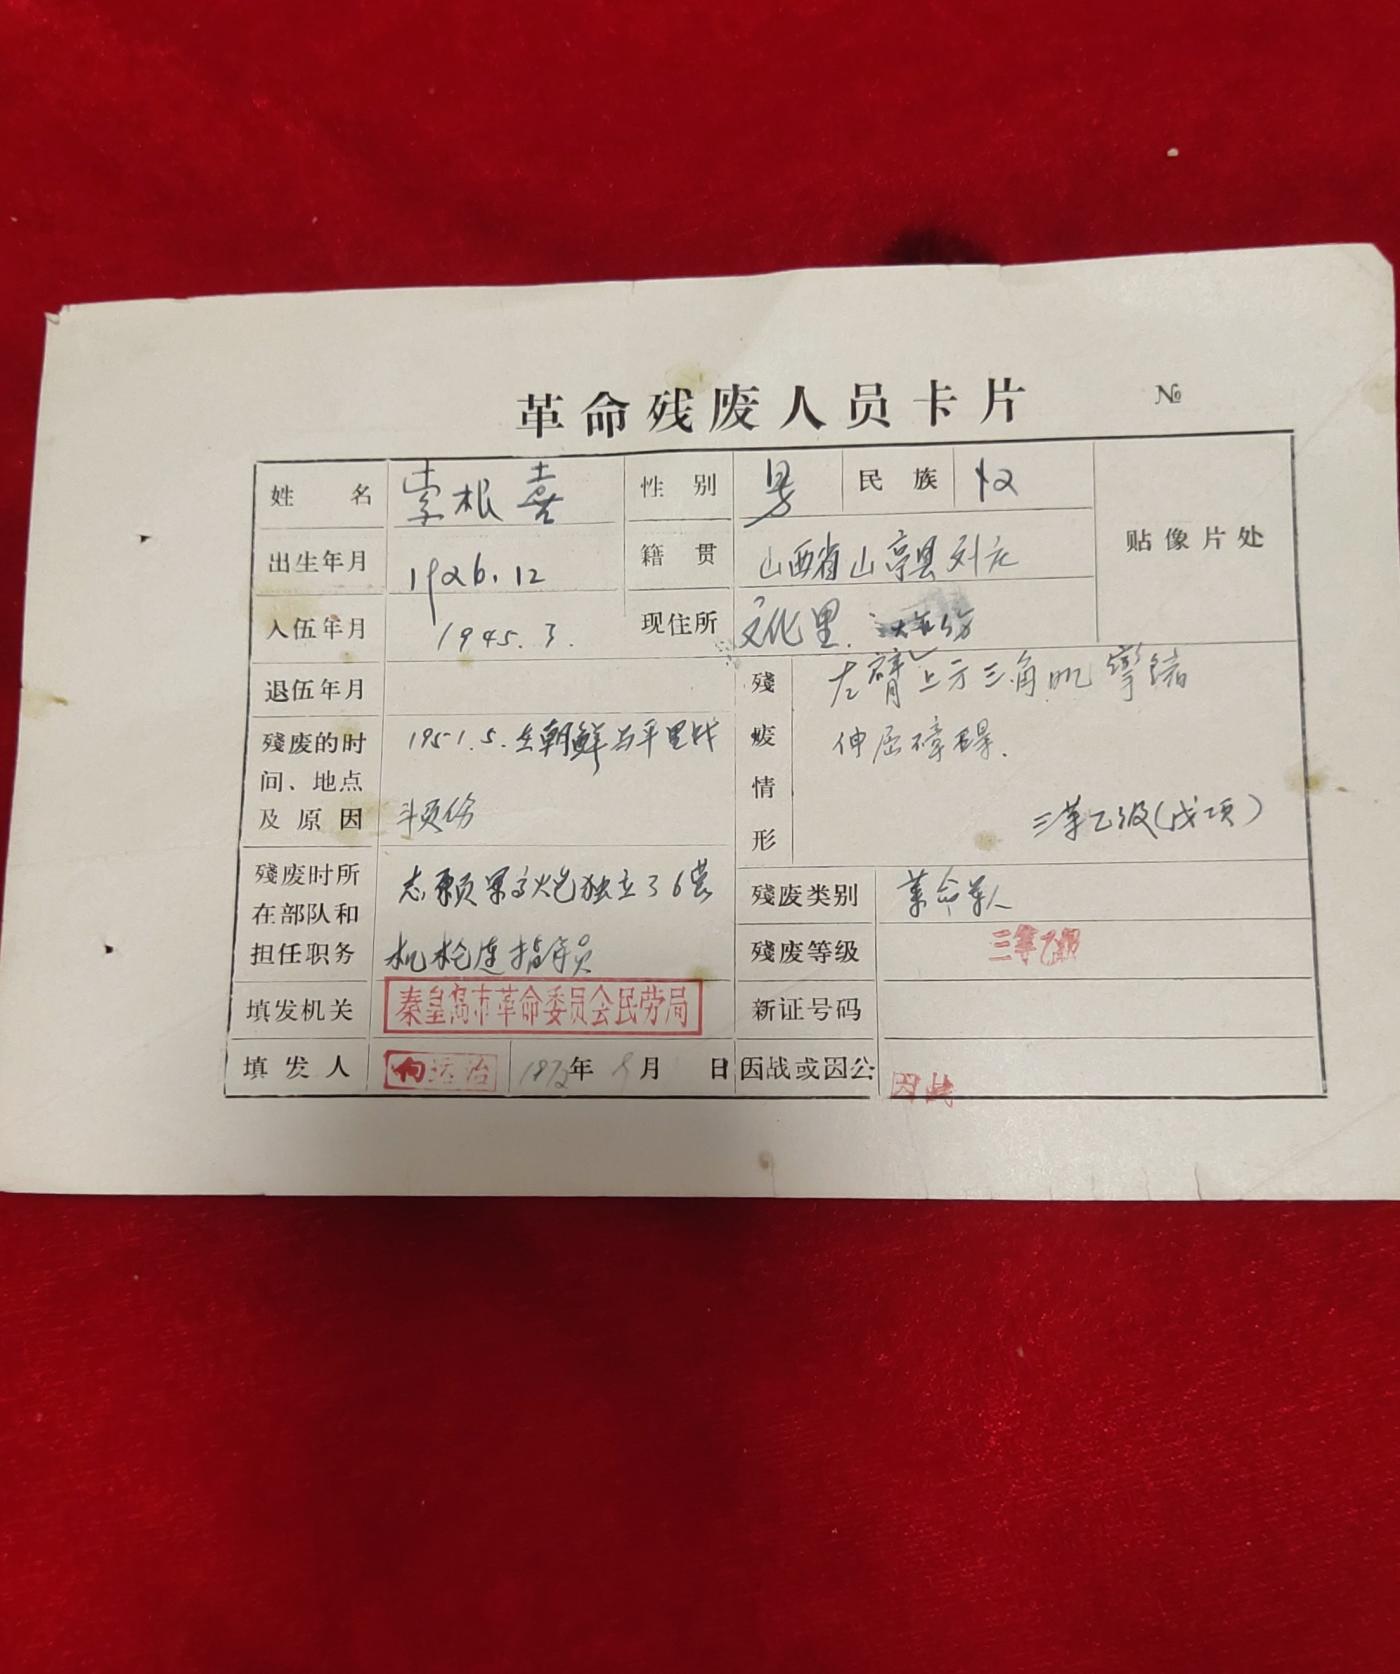 革命残废人员卡片 №
姓名 李根喜 性别 男 民族 汉
贴像片处
出生年月 1926.12 籍贯 山西省山亭县刘元
入伍年月 1945.3. 现住所 文化里.
退伍年月
残废的时间、地点及原因 1951.5.在朝鲜与平里战
斗负伤
残废情形 左臂上方三角肌挛缩
伸屈障碍.
三等乙级(戊项)
残废时所在部队和担任职务 志愿军高炮独立36营
机枪连指导员
残废类别 革命军人
残废等级 三等乙级
填发机关 秦皇岛市革命委员会民劳局
新证号码
填发人 1972年 月 日
因战或因公 因战